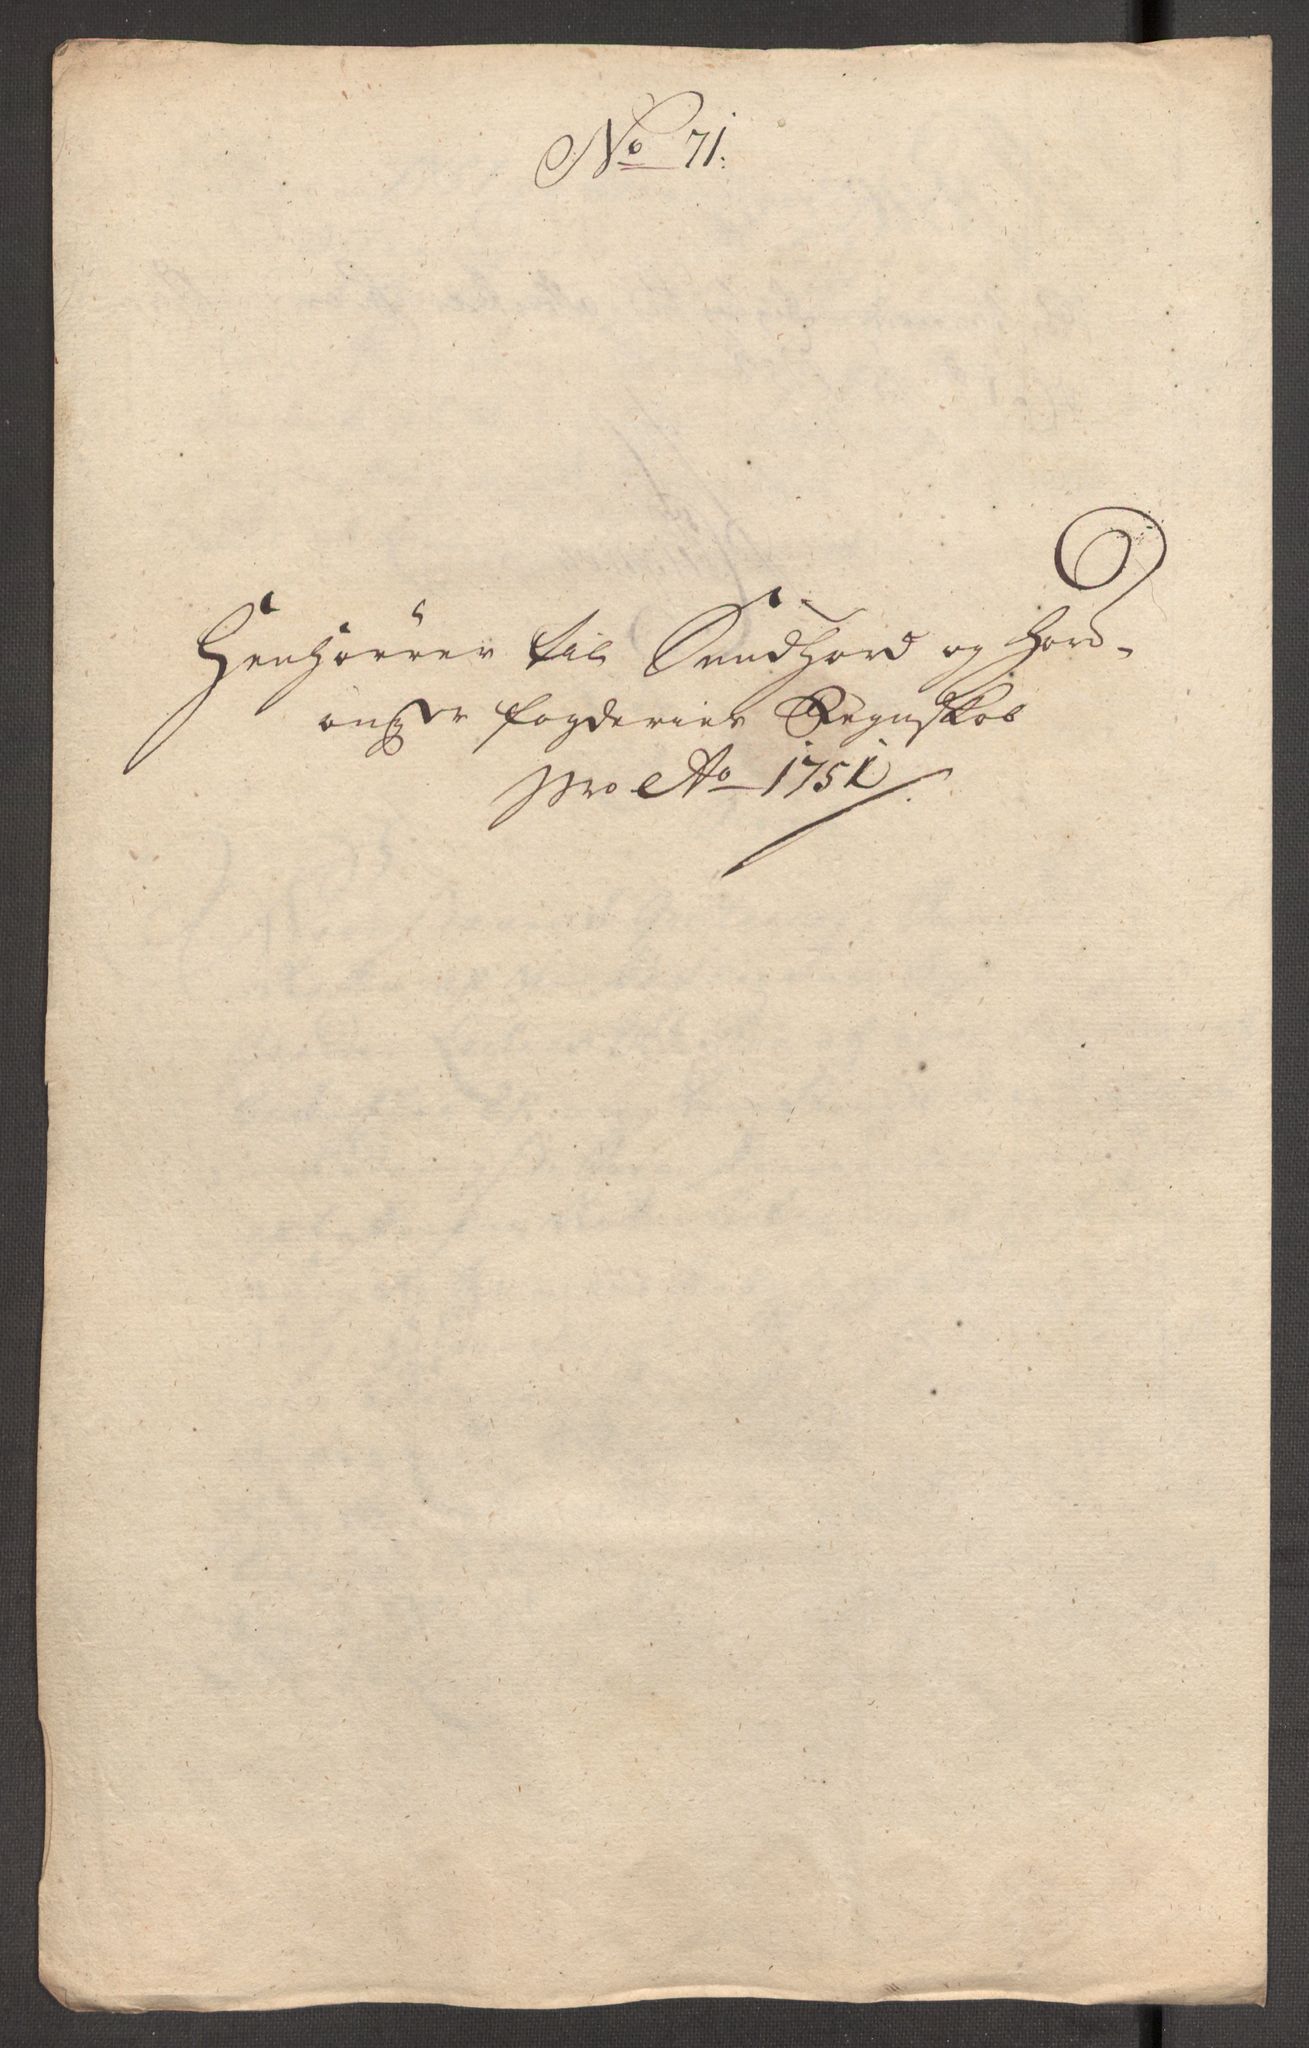 No 71.
Henhörer til Sundhord og Hard-
anger fogderies Regnskab
pro Ao 1751